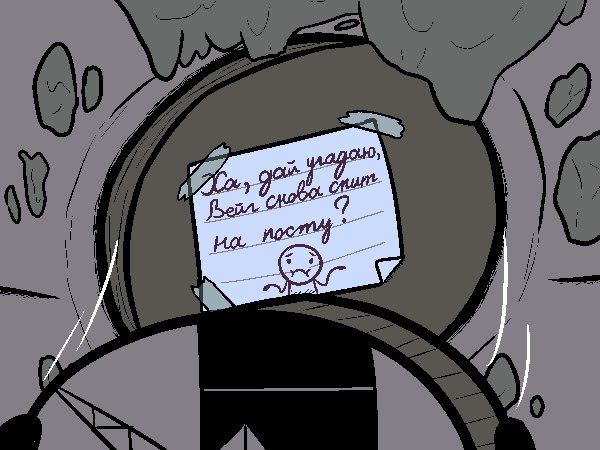 Ха, дай угадаю,
Вейг снова спит
на посту?